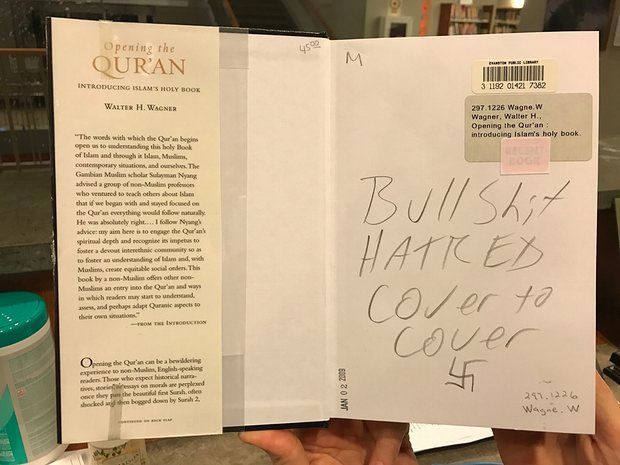 Opening the
QUR'AN
INTRODUCING ISLAM'S HOLY BOOK
WALTER H. WAGNER
"The words with which the Qur'an begins
open us to understanding this holy Book
of Islam and through it Islam, Muslims,
contemporary situations, and ourselves. The
Gambian Muslim scholar Sulayman Nyang
advised a group of non-Muslim professors
who ventured to teach others about Islam
that if we began with and stayed focused on
the Qur'an everything would follow naturally.
He was absolutely right.... I follow Nyang's
advice: my aim here is to engage the Qur'an's
spiritual depth and recognize its impetus to
foster a devout interethnic community so as
to foster an understanding of Islam and, with
Muslims, create equitable social orders. This
book by a non-Muslim offers other non-
Muslims an entry into the Qur'an and ways
in which readers may start to understand,
assess, and perhaps adapt Quranic aspects to
their own situations."
—FROM THE INTRODUCTION
Opening the Qur'an can be a bewildering
experience to non-Muslim, English-speaking
readers. Those who expect historical narra-
tives, stories, or essays on morals are perplexed
once they pass the beautiful first Surah, often
shocked and then bogged down by Surah 2,
CONTINUED ON BACK FLAP
45.00
M
EVANSTON PUBLIC LIBRARY
3 1192 01421 7382
297.1226 Wagne.W
Wagner, Walter H.,
Opening the Qur'an :
introducing Islam's holy book.
RECENT
BOOK
Bullshit
HATRED
Cover to
Cover
JAN 02 2009
297.1226
Wagne.W